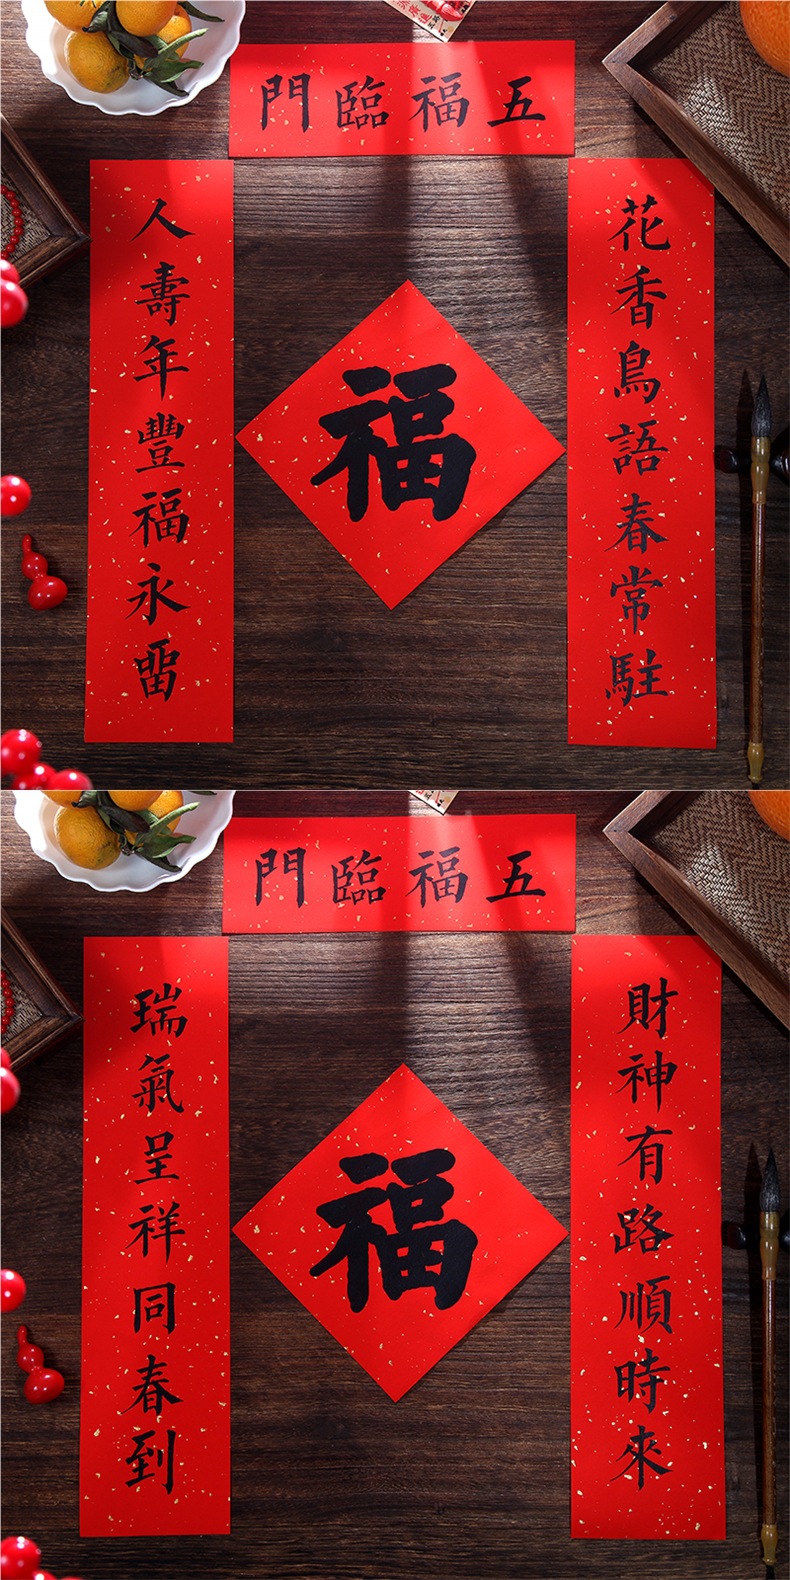 五福臨門
花香鳥語春常駐
人壽年豐福永留
福
五福臨門
財神有路順時來
瑞氣呈祥同春到
福